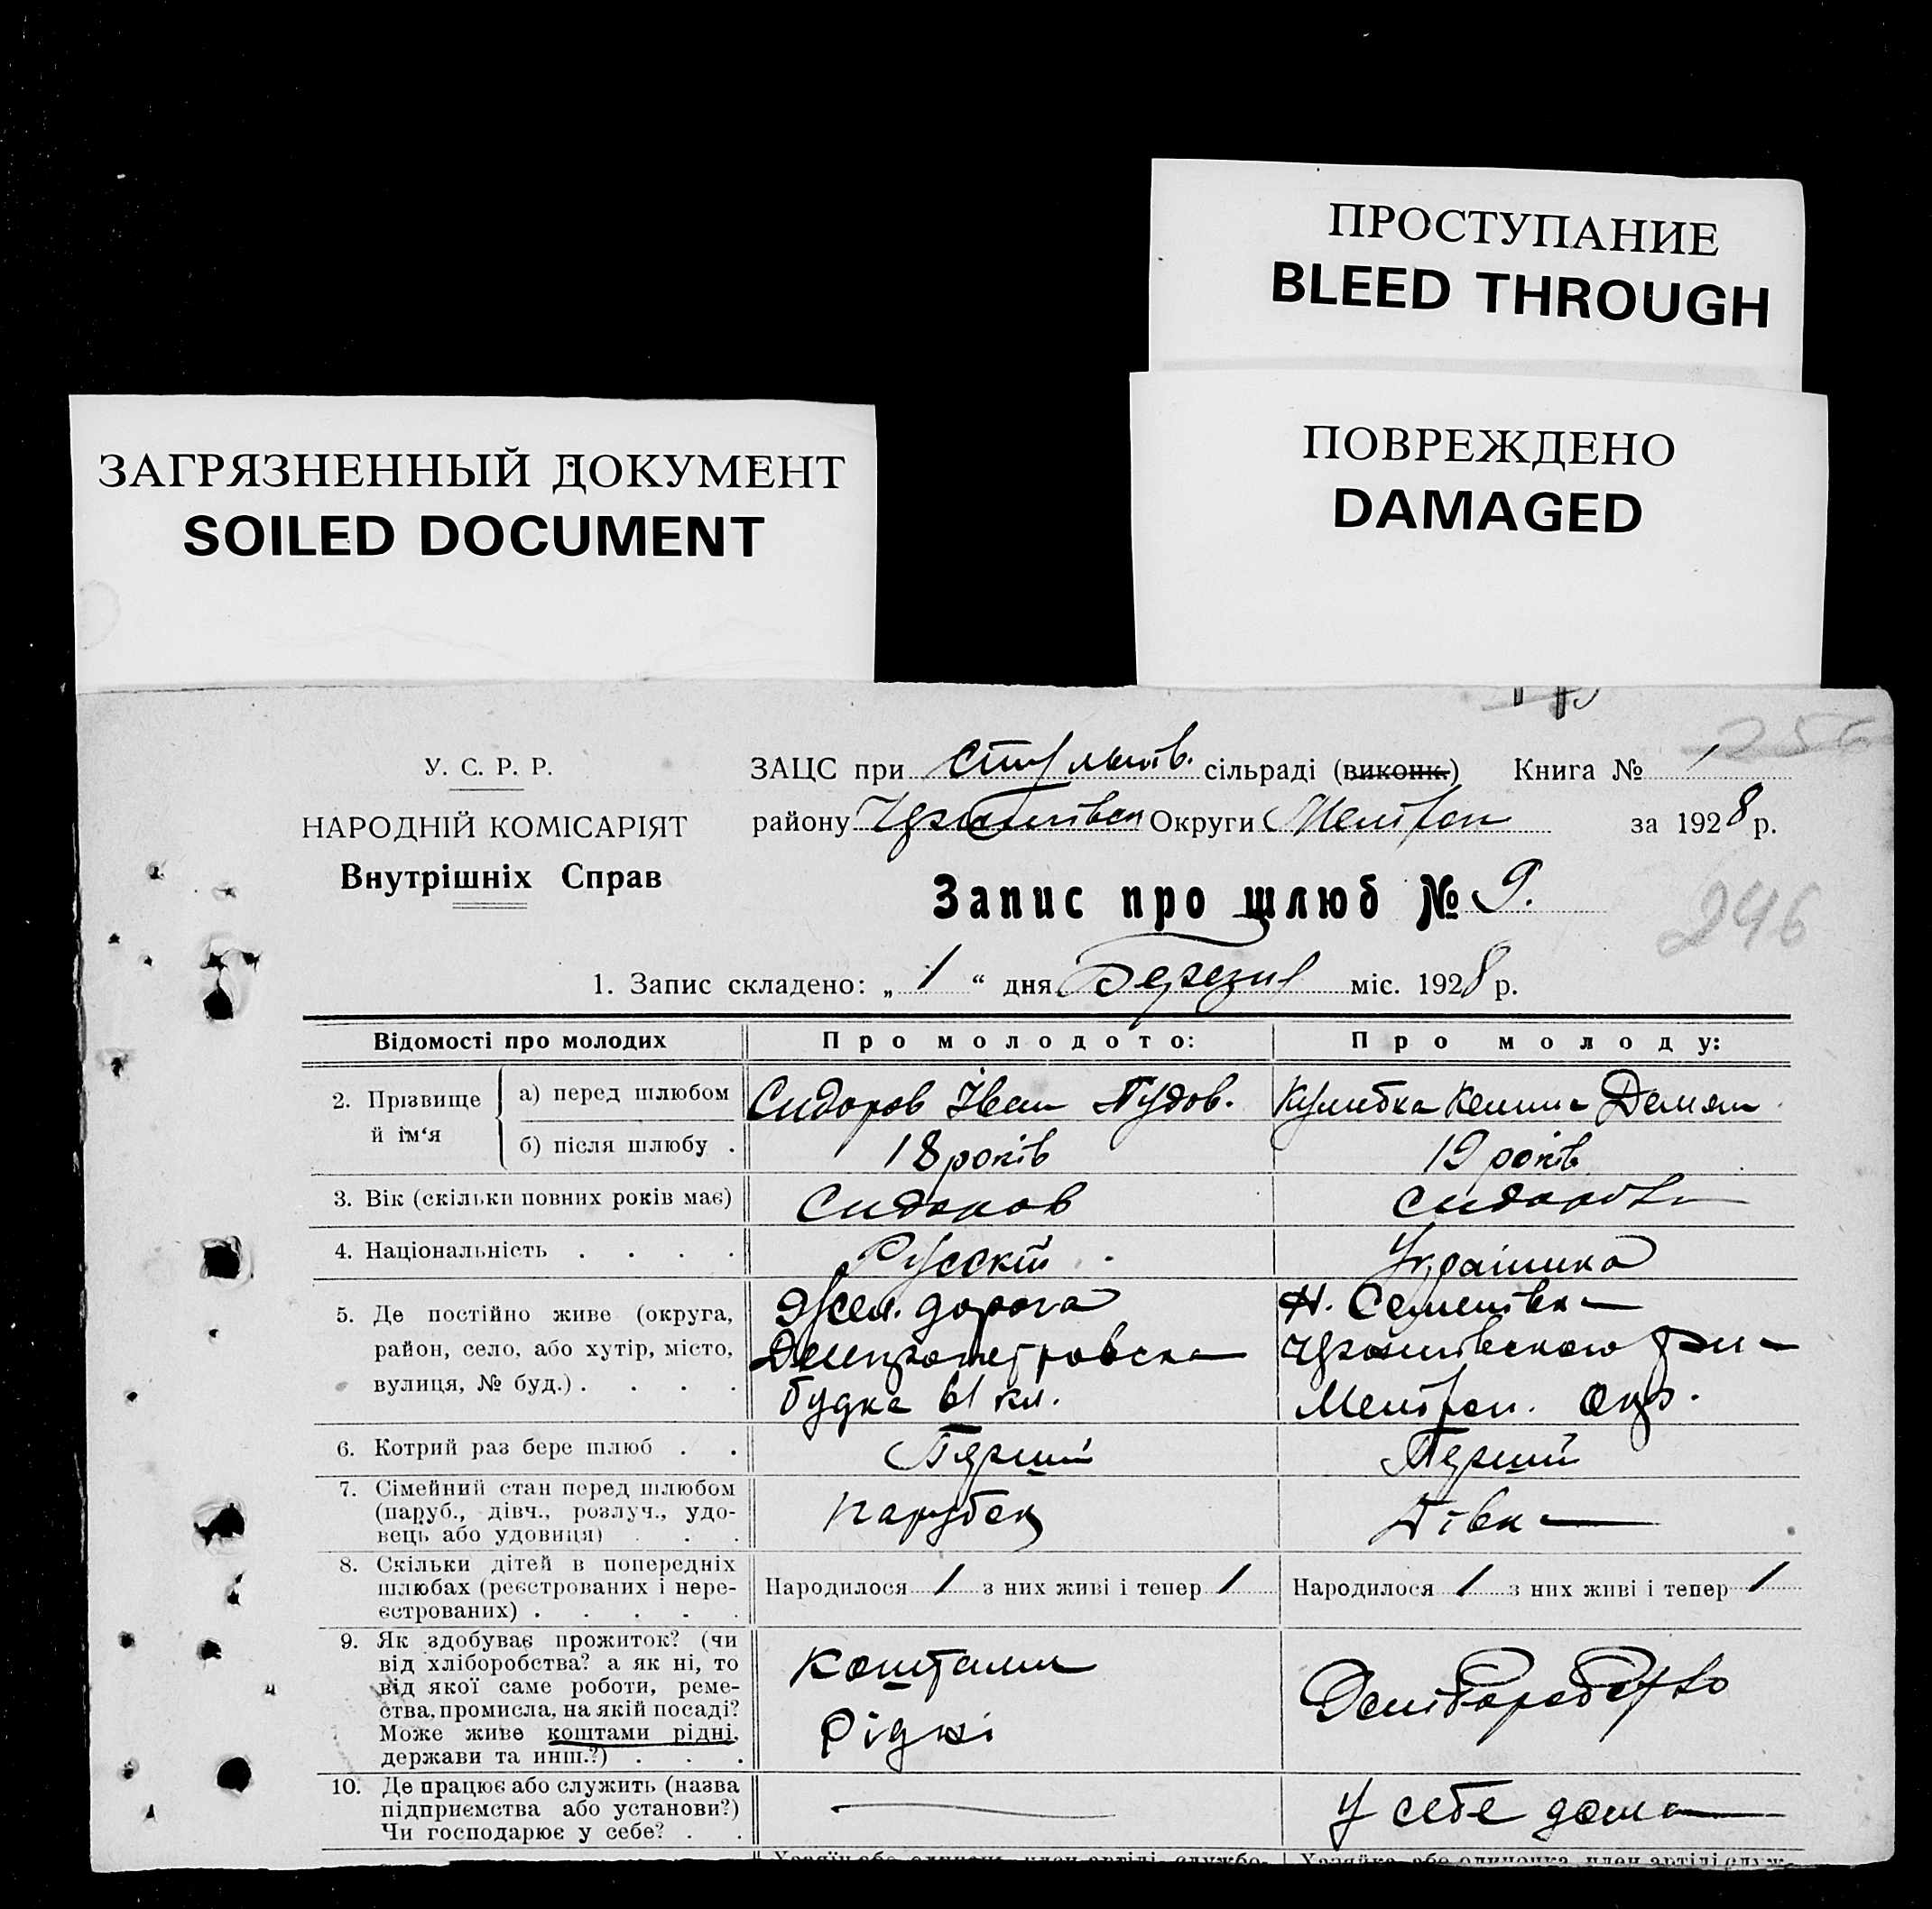 ПРОСТУПАНИЕ
BLEED THROUGH
ЗАГРЯЗНЕННЫЙ ДОКУМЕНТ
SOILED DOCUMENT
ПОВРЕЖДЕНО
DAMAGED
256
У. С. Р. Р.
НАРОДНІЙ КОМІСАРІЯТ
Внутрішніх Справ
ЗАЦС при сільраді (виконк.) Книга № 1
району Округи за 1928 р.
Запис про шлюб № 9.
246
1. Запис складено: „ 1 “ дня міс. 1928 р.
Відомості про молодих
Про молодого:
Про молоду:
2. Прізвище й ім‘я
а) перед шлюбом
Сидоров Іван Пудов.
Демян
б) після шлюбу .
18 років
19 років
3. Вік (скільки повних років має)
Сидоров
Сидорова
4. Національність . . . .
Русскій
Українка
5. Де постійно живе (округа,
район, село, або хутір, місто,
вулиця, № буд.) . . . .
Жел. дорога
Днепропетровска
будка
Н. Семенівка
Мелітоп. Окр.
6. Котрий раз бере шлюб . .
Перший
Перший
7. Сімейний стан перед шлюбом
(паруб., дівч., розлуч., удо-
вець або удовиця) . . .
парубок
Дівка
8. Скільки дітей в попередніх
шлюбах (реєстрованих і нере-
єстрованих) . . . . .
Народилося / з них живі і тепер /
Народилося / з них живі і тепер /
9. Як здобуває прожиток? (чи
від хліборобства? а як ні, то
від якої саме роботи, реме-
ства, промисла, на якій посаді?
Може живе коштами рідні,
держави та инш.?) . . .
коштами
рідні
10. Де працює або служить (назва
підприємства або установи?)
Чи господарює у себе? . .
у себе дома
Хазяїн або одинак, член артілі, службо-
Хазяйка або одиночка, член артілі служ-